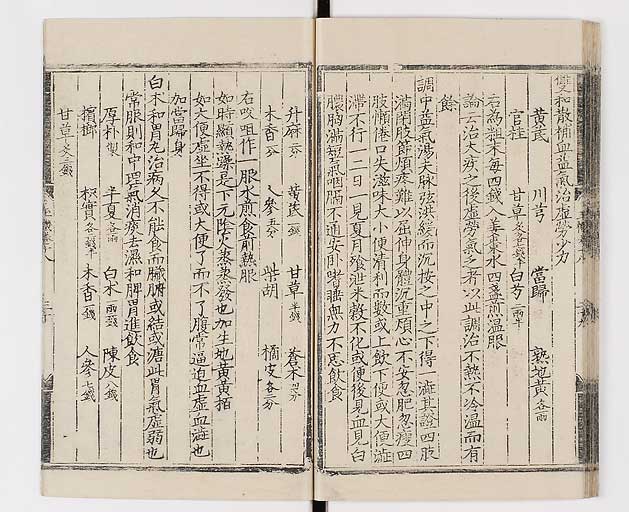 雙和散補血益氣治虛勞少力
黃芪 川芎 當歸 熟地黃各一兩
官桂 甘草各 白芍二兩半
右為粗末每四錢入姜棗水四盞煎溫服
論云治大疾之後虛勞氣乏者以此調治不熱不冷溫而有
餘
調中益氣湯大脉弦洪緩而沉按之中之下得一澁其證四肢
滿閑肢節煩疼難以屈伸身體沉重煩心不安忽肥忽瘦四
肢懶倦口失滋味大小便清利而數或上飲下便或大便澁
滯不行一二日一見夏月飱泄米穀不化或便後見血見白
膿胸滿短氣咽膈不通安卧嗜睡無力不思飲食
升麻二分 黃芪一錢 甘草半錢 蒼朮四分
木香二分 人參五分 柴胡 橘皮各三分
右㕮咀作一服水煎食前熱服
如時顯熱燥是下元陰火蒸蒸發也加生地黃黃栢
如大便虛坐不得或大便了而不了腹常逼迫血虛血澁也
加當歸身
白朮和胃丸治病久不能食而臟腑或結或溏此胃氣虛弱也
常服則和中理氣消痰去濕和脾胃進飲食
厚朴製 半夏各一兩 白朮一兩二錢 陳皮八錢
檳榔 枳實各二錢半 木香一錢 人參七錢
甘草炙三錢